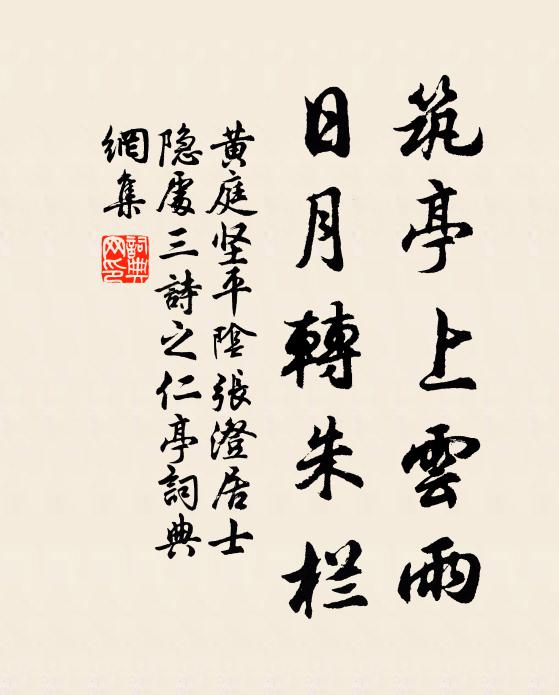 筑亭上雲雨
日月轉朱栏
黄庭坚平陰張澄居士
隐處三詩之仁亭詞典
網集
詞典
网印